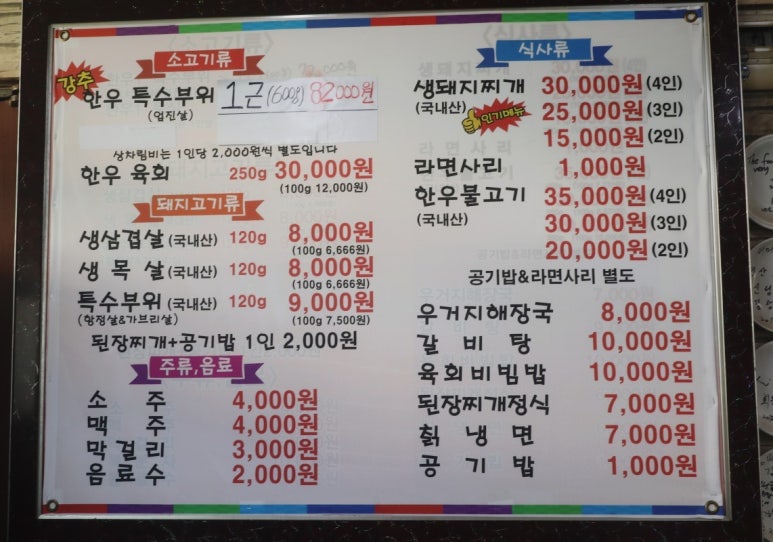 소고기류
강추
한우 특수부위 1근(600g) 82000원
(엄진살)
상차림비는 1인당 2,000원씩 별도입니다
한우 육회 250g 30,000원
(100g 12,000원)
돼지고기류
생삼겹살(국내산) 120g 8,000원
(100g 6,666원)
생 목 살(국내산) 120g 8,000원
(100g 6,666원)
특수부위(국내산) 120g 9,000원
(항정살&가브리살) (100g 7,500원)
된장찌개+공기밥 1인 2,000원
주류,음료
소 주 4,000원
맥 주 4,000원
막걸리 3,000원
음료수 2,000원
식사류
생돼지찌개 30,000원(4인)
(국내산) 인기메뉴 25,000원(3인)
15,000원(2인)
라면사리 1,000원
한우불고기 35,000원(4인)
(국내산) 30,000원(3인)
20,000원(2인)
공기밥&라면사리 별도
우거지해장국 8,000원
갈 비 탕 10,000원
육회비빔밥 10,000원
된장찌개정식 7,000원
칡 냉 면 7,000원
공 기 밥 1,000원